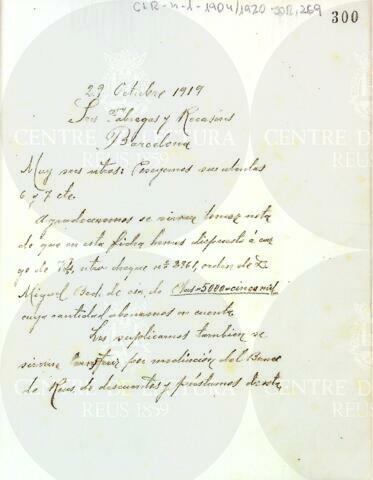 CLR-n-1-1904/1920-JOR,269
300
29 Octubre 1919
Sres Fábregas y Recasens
Barcelona
Muy sres ntros: Poseemos sus atentas
6 y 7 cte.
Agradeceremos se sirvan tomar nota
de que en esta fecha hemos dispuesto á car
go de Vds ntro cheque nº 3961, orden de D.
Miguel de esa, de Ptas 5000 = cinco mil
cuya cantidad abonamos en cuenta
Les suplicamos tambien se
sirvan por mediación del Banco
de Reus, de descuentos y préstamos de esta
CENTRE DE LECTURA
REUS 1859